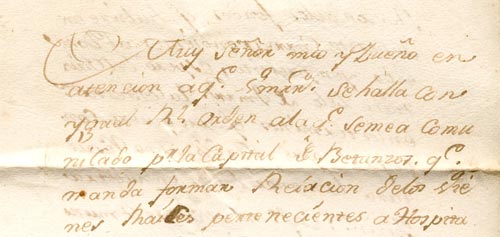 Muy señor mio y Dueño en
atencion a qe. Vmrd. se halla con
ygual Rl. orden ala qe. se me a Comu
nicado pr. la Capital de Betanzos, qe.
manda formar Relacion delos Vie
nes Raices pertenecientes a Hospita